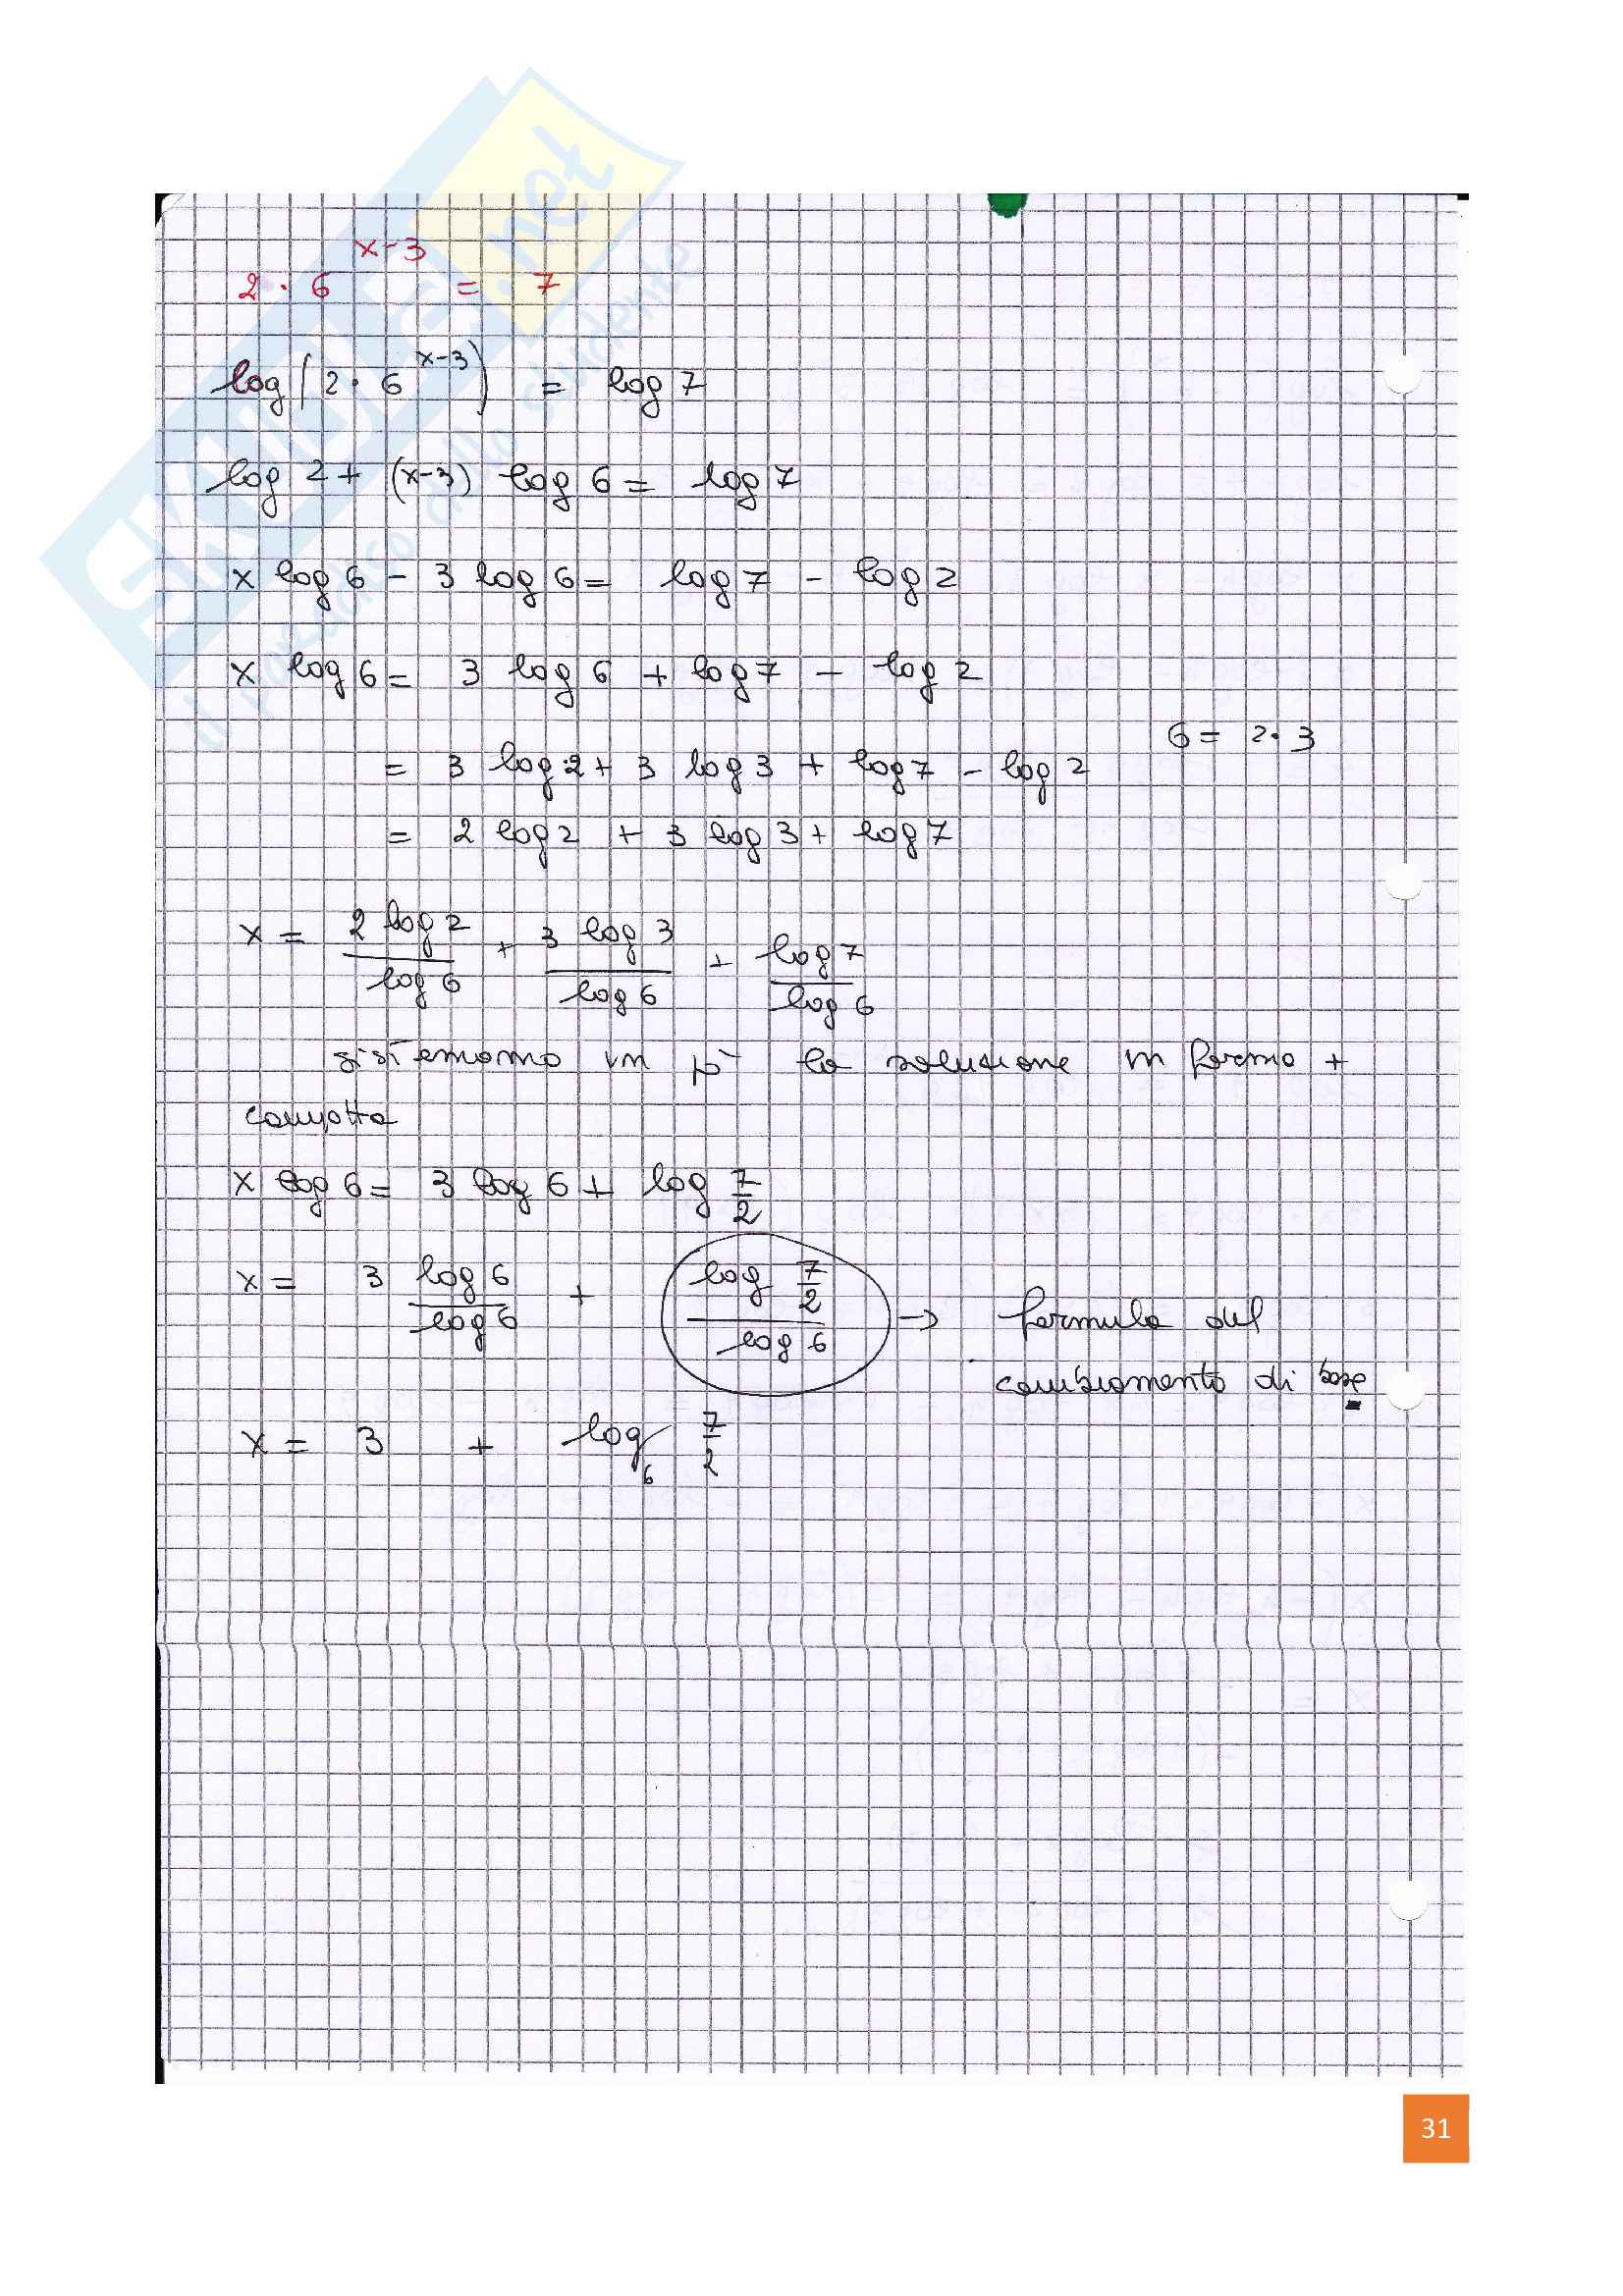 2 · 6^(x-3) = 7
log(2 · 6^(x-3)) = log 7
log 2 + (x-3) log 6 = log 7
x log 6 - 3 log 6 = log 7 - log 2
x log 6 = 3 log 6 + log 7 - log 2
6 = 2·3
= 3 log 2 + 3 log 3 + log 7 - log 2
= 2 log 2 + 3 log 3 + log 7
x = 2 log 2 / log 6 + 3 log 3 / log 6 + log 7 / log 6
sistemiamo un pò la soluzione in forma +
compatta
x log 6 = 3 log 6 + log 7/2
x = 3 log 6 / log 6 + log 7/2 / log 6 → formula del
cambiamento di base
x = 3 + log₆ 7/2
31
SKUOLA.net
il paradiso dello studente